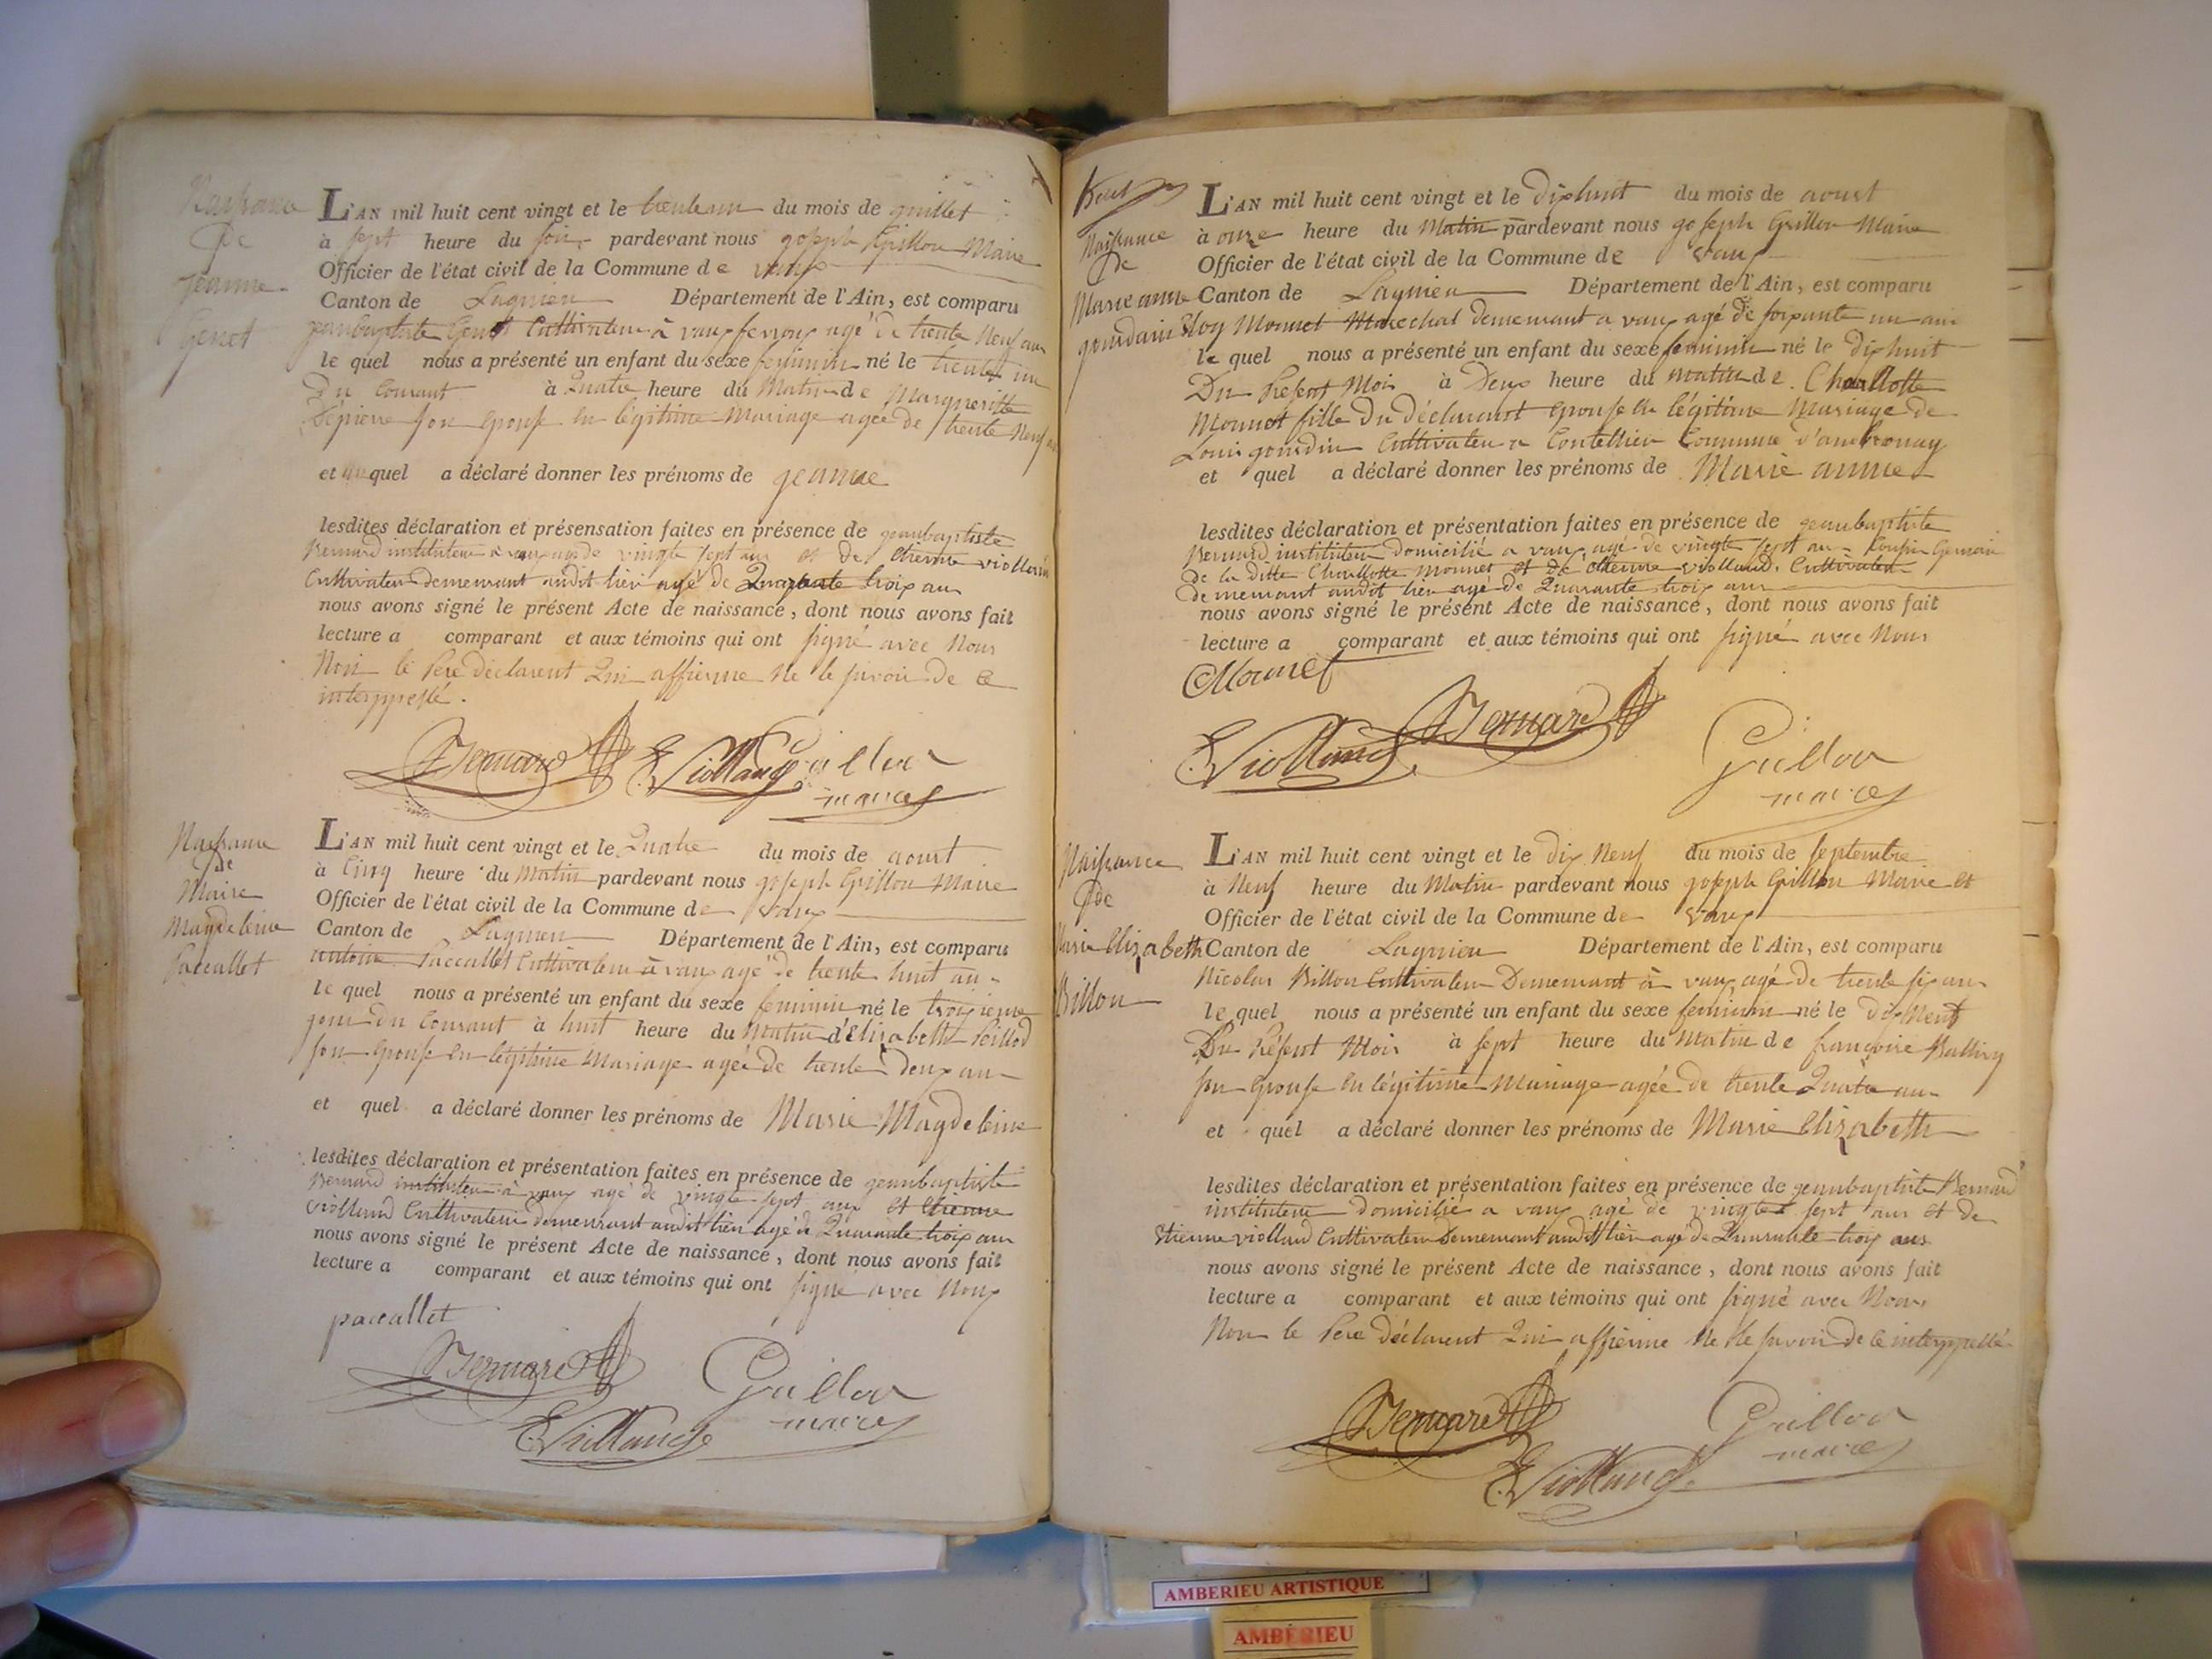 Naissance
de
jeanne
Genet
L'AN mil huit cent vingt et le trenteun du mois de juillet
à sept heure du soir pardevant nous joseph Grillon Maire
Officier de l'état civil de la Commune de vaux
Canton de Lagnieu Département de l'Ain, est comparu
jeanbaptiste Genet Cultivateur à vaux agé de trente Neuf ans
le quel nous a présenté un enfant du sexe feminin né le trente un
Du Courant à Quatre heure du Matin de Margueritte
Dépierre son Epouse en légitime Mariage agée de trente Neuf
et quel a déclaré donner les prénoms de jeanne
lesdites déclaration et présensation faites en présence de jeanbaptiste
Bernard instituteur à vaux agé de vingte sept ans et de Etienne violland
Cultivateur demeurant audit lieu agé de Quarante trois ans
nous avons signé le présent Acte de naissance, dont nous avons fait
lecture a comparant et aux témoins qui ont signé avec Nous
Non le Pere déclarent Qui affierme Ne le savoir De ce
interppellé.
Bernard E Violland Grillon
maire
Naissance
de
Marie
Magdeleine
Paccallet
L'AN mil huit cent vingt et le Quatre du mois de aoust
à Cinq heure du Matin pardevant nous joseph Grillon Maire
Officier de l'état civil de la Commune de vaux
Canton de Lagnieu Département de l'Ain, est comparu
antoine Paccallet Cultivateur à vaux agé de trente huit an
le quel nous a présenté un enfant du sexe feminin né le troisieme
jour du Courant à huit heure du Matin d'Elizabeth Peillod
son Epouse en légitime Mariage agée de trente deux an
et quel a déclaré donner les prénoms de Marie Magdeleine
lesdites déclaration et présentation faites en présence de jeanbaptiste
Bernard instituteur à vaux agé de vingte sept ans et Etienne
violland Cultivateur demeurant audit lieu agé de Quarante trois ans
nous avons signé le présent Acte de naissance, dont nous avons fait
lecture a comparant et aux témoins qui ont signé avec Nous
paccallet
Bernard Grillon
E Violland maire
Naissance
de
Marie anne
gourdain
L'AN mil huit cent vingt et le dixhuit du mois de aoust
à onze heure du Matin pardevant nous joseph Grillon Maire
Officier de l'état civil de la Commune de vaux
Canton de Lagnieu Département de l'Ain, est comparu
Eloy Monnet Marechal demeurant a vaux agé de soixante un an
le quel nous a présenté un enfant du sexe feminin né le dixhuit
Du Présent Mois à Deux heure du matin de Charllotte
Monnet fille Du Déclarant Epouse en légitime Mariage de
Louis gourdin Cultivateur a Commune d'ambronay
et quel a déclaré donner les prénoms de Marie anne
lesdites déclaration et présentation faites en présence de jeanbaptiste
Bernard instituteur domicilié a vaux agé de vingte sept an Cousin Germain
de la ditte Charllotte monnet et de etienne violland, Cultivateur
demeurant audit lieu agé de Quarante trois ans
nous avons signé le présent Acte de naissance, dont nous avons fait
lecture a comparant et aux témoins qui ont signé avec Nous
Monnet
Bernard
E Violland Grillon
maire
Naissance
de
Marie Elizabeth
Billon
L'AN mil huit cent vingt et le dix Neuf du mois de septembre
à Neuf heure du Matin pardevant nous joseph Grillon Maire et
Officier de l'état civil de la Commune de vaux
Canton de Lagnieu Département de l'Ain, est comparu
Nicolas Billon Cultivateur Demeurant à vaux agé de trente six ans
le quel nous a présenté un enfant du sexe feminin né le dix Neuf
Du Présent Mois à sept heure du Matin de françoise
son Epouse en légitime Mariage agée de trente Quatre an
et quel a déclaré donner les prénoms de Marie Elizabeth
lesdites déclaration et présentation faites en présence de jeanbaptiste Bernard
instituteur domicilié a vaux agé de vingte sept ans et de
Etienne violland Cultivateur Demeurant audit lieu agé de Quarante trois ans
nous avons signé le présent Acte de naissance, dont nous avons fait
lecture a comparant et aux témoins qui ont signé avec Nous,
Non le Pere déclarent Qui affierme Ne le savoir de ce interppellé
Bernard Grillon
E Violland maire
AMBERIEU ARTISTIQUE
AMBERIEU